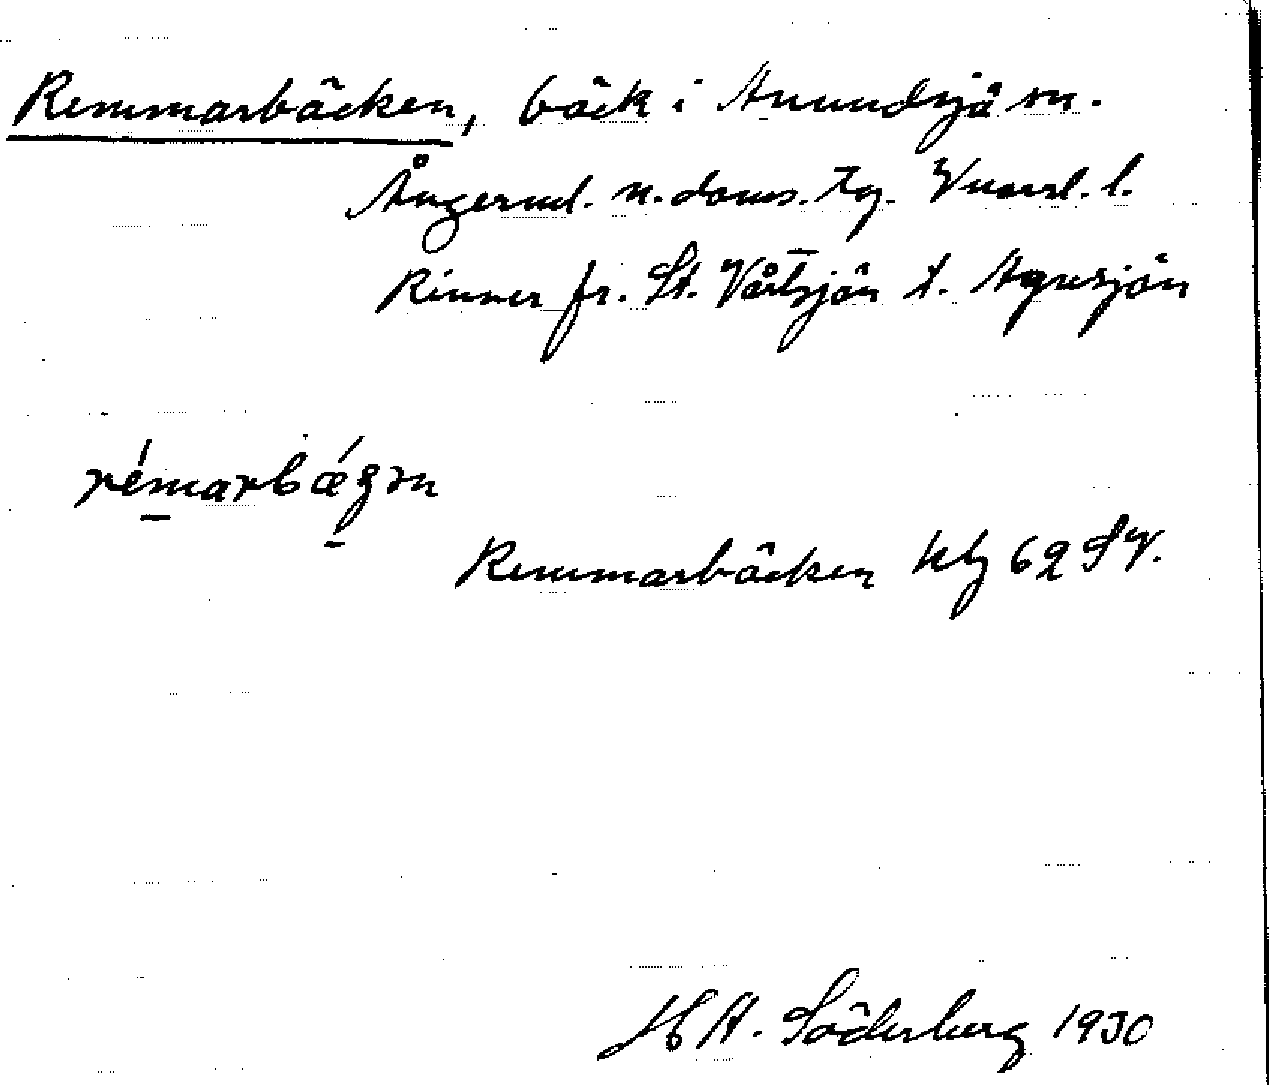 Remmarbäcken, bäck i Anundsjö sn.
Ångerml. n. doms. tg. Vnorrl. l.
Rinner fr. St. Vårtsjön t. Agnsjön
rémarbǽgən
Remmarbäcken kbl 62 SV.
H A. Söderberg 1930